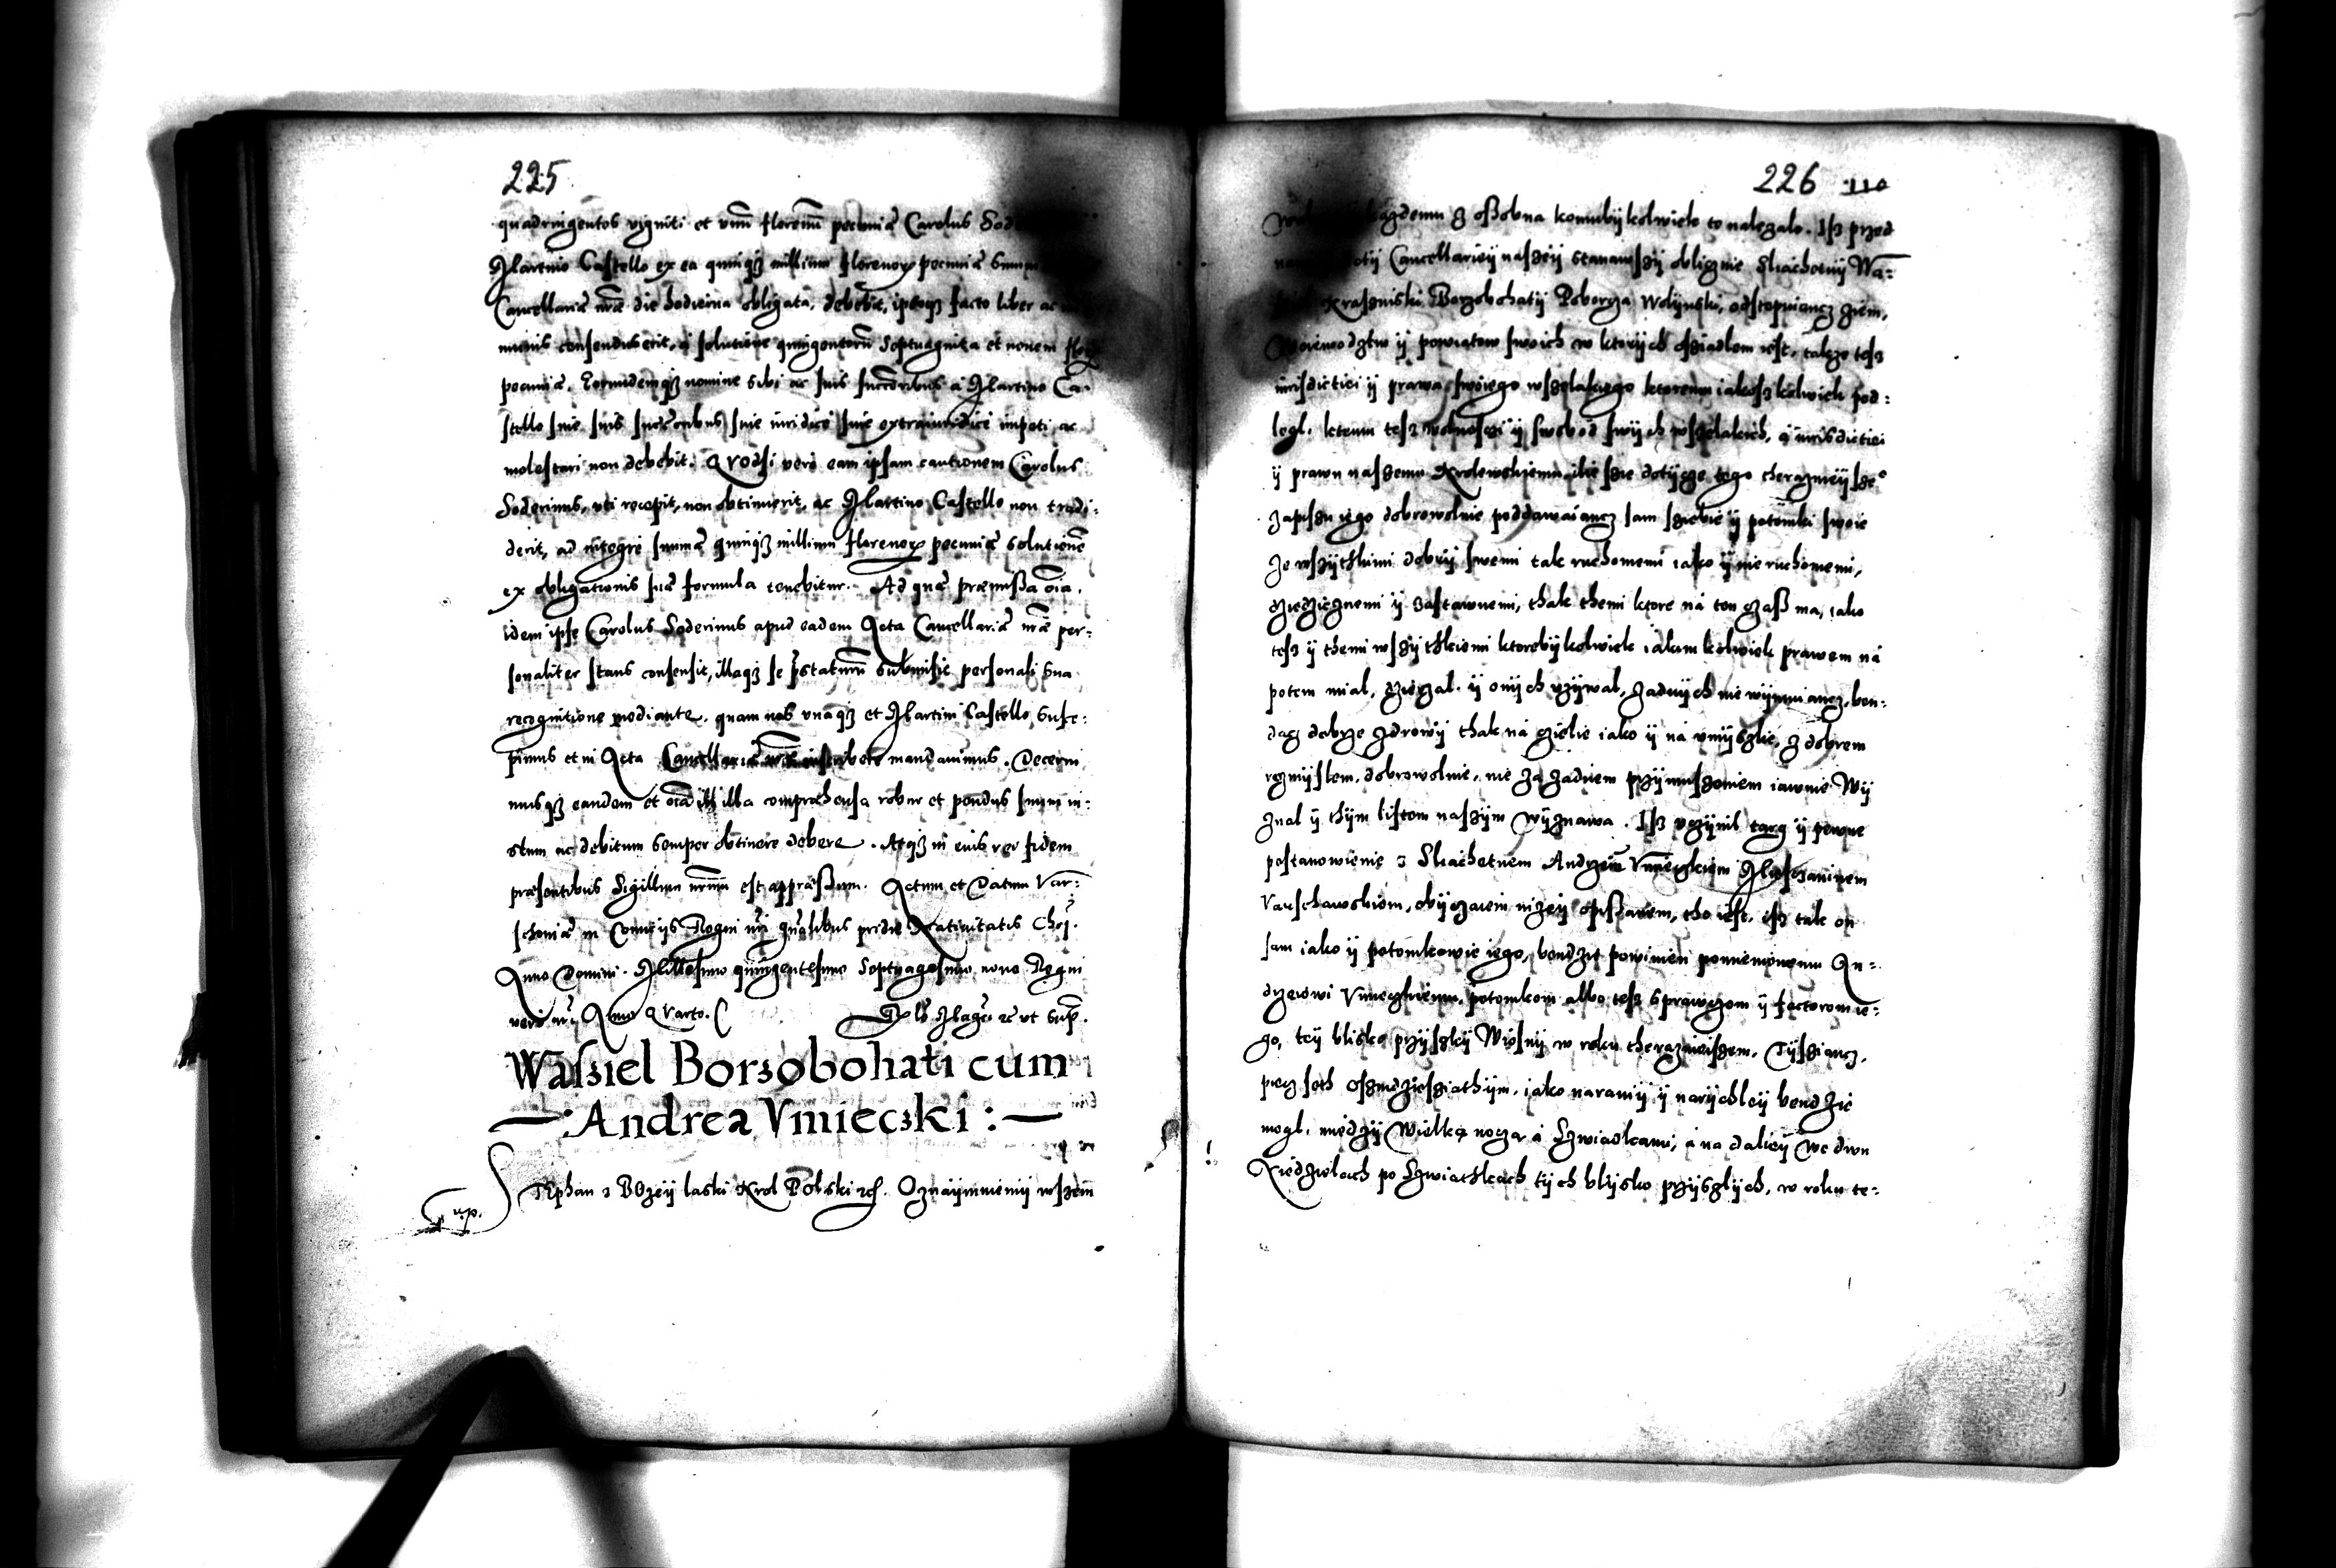 225
quadringentos viginti et vnũ florenũ pecuniæ Carolus Sod
Martino Castello ex ea quinq3 millium florenorꝫ pecuniæ
Cancellariæ nr̃æ die hodierna obligata, debebit, ipsoq3 facto liber ac
munis censendus erit, a solutione quingentorũ Septuaginta et nouem
pecuniæ. Eorundemq3 nomine sibi ac suis succẽoribus a Martino Ca-
stello siue suis succẽoribus siue iuridicè siue extraiuridicè impeti ac
molestari non debebit. Quodsi verò eam ipsam cautionem Carolus
Soderinus, vti recepit, non obtinuerit, ac Martino Castello non tradi:
derit, ad integrè summæ quinq3 millium florenorꝫ pecuniæ solutionẽ
ex obligationis suæ formula tenebitur. Ad quæ præmissa õia.
idem ipse Carolus Soderinus apud eadem Acta Cancellariæ nr̃æ per-
sonaliter stans consensit, illaq3 se p̃staturũ submisit personali sua
recognitione mediante. quam nos vnaq3 et Martini Castello susce:
pimus et in Acta Cancellariæ nr̃æ inscribere mandauimus. Decerni
musq3 eandem et õia in illa comprehensa robur et pondus suum iu:
stum ac debitum semper obtinere debere. Atq3 in eius rei fidem
præsentibus Sigillum nr̃um est appræssum. Actum et Datum Var-
schouiæ in Comitijs Regni nr̃i gñalibus pridie Natiuitatis Chri.
Anno Domini. Millesimo quingentesimo Septuagesimo nono Regni
verò nr̃i Anno Quarto. vt Sup̃.
Wassiel Borsobohati cum
Andrea Vmiecski :
STEphan z Bozey laski Krol Polski etc. Oznaymuiemy wszem
226 110
kazdemu z ossobna komubykolwiek to nalezalo. Isz przed
Cancellariey naszey stanawszy oblicznie Sliachetny Wa-
Krasznieski Borzobohaty Poborza Wolynski, odstepuiancz ziem,
Woiewodztw y powiatow swoich w ktorych osziadlem iest, takze tesz
iurisdictiei y prawa swoiego wszelakiego ktoremu iakosz kolwiek pod:
legl. ktemu tesz wolnosci y swobod swych wszelakich, a iurisdictiei
y prawu naszemu Krolewskiemu ilie sie dotycze tego therazniejsze°
Zapisu iego dobrowolnie poddawaiancz sam siebie y potomki swoie
Ze wszythkimi dobry swemi tak ruchomemi iako y nie ruchomemi,
dziedzicznemi y zastawnemi, thak themi ktore na ten czass ma, iako
tesz y themi wszythkiemi ktorebykolwiek iakimkolwiek prawem na
potem mial, dzierzal. y onych vzywal, zadnych nie wymuiancz, ben:
dacz dobrze zdrowy thak na cielie iako y na vmyszlie, z dobrem
rozmyslem, dobrowolnie, nie za zadnem przymuszeniem iawnie Wy
znal y thym listem naszym wyznawa. Isz vczynil targ y pewne
postanowienie z Sliachetnem Andrzeiẽ Vmieczkiem Mieszczaninem
Varschawskiem, obyczaiem nizey opissanem, tho iest. isz tak on
sam iako y potomkowie iego, bendzie powinien pomienionemu An-
drzeiowi Vmieczkiemu, potomkom albo tesz sprawczom y factorom ie:
go, tey blisko przyszley Wiosny w roku therazniejszem. Tyssiancz.
piecz seth oszmdziesziathym. iako naraniey y narychley bendzie
mogl. miedzy Wielką noczą a Szwiatkami, a na daliey we dwu
Niedzielach po Szwiathkach tych blysko przyszlych, w roku te: